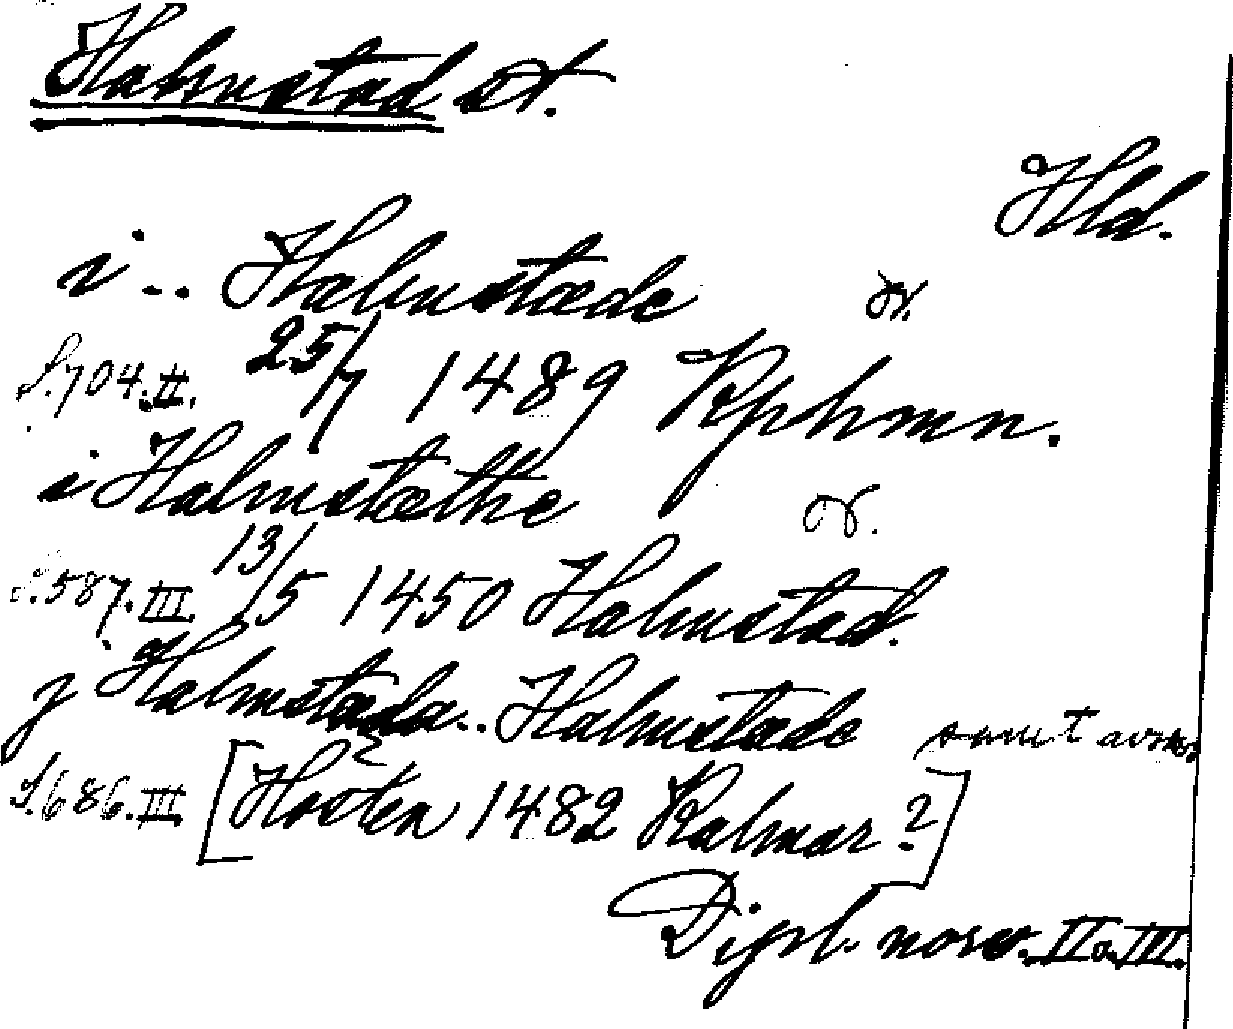 Halmstad st.
Hld.
i .. Halmstæde or.
S. 704. II. 25/7 1489 Kphmn.
i Halmstæthe or.
S. 587. III. 13/5 1450 Halmstad.
j Halmstada .. Halmstade samt
S. 686. III. [Hösten 1482 Kalmar?]
Dipl. norv. II o. III.